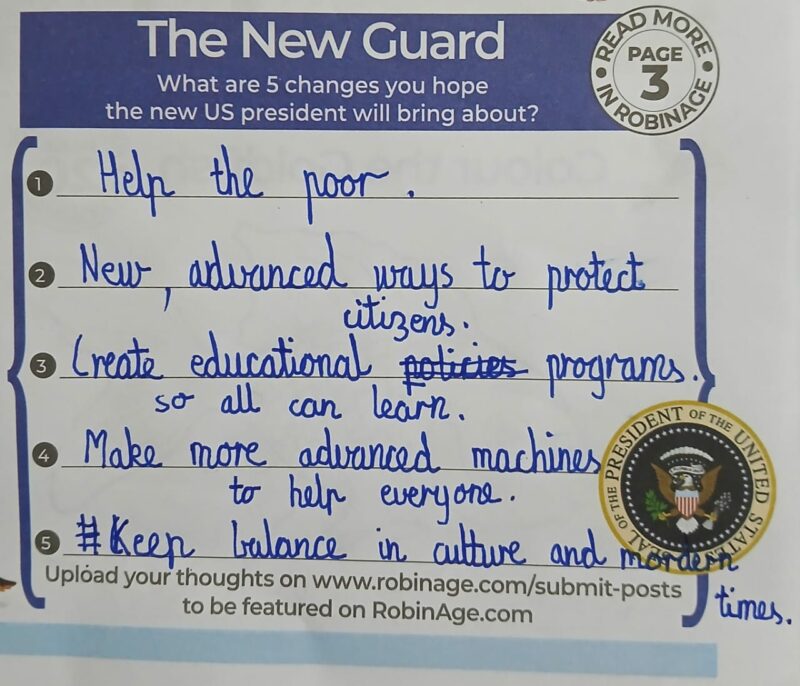 The New Guard
What are 5 changes you hope
the new US president will bring about?
READ MORE
PAGE
3
IN ROBINAGE
1 Help the poor.
2 New, advanced ways to protect
citizens.
3 Create educational policies programs.
so all can learn.
4 Make more advanced machines
to help everyone.
5 #Keep balance in culture and mordern
times.
SEAL OF THE PRESIDENT OF THE UNITED STATES
Upload your thoughts on www.robinage.com/submit-posts
to be featured on RobinAge.com